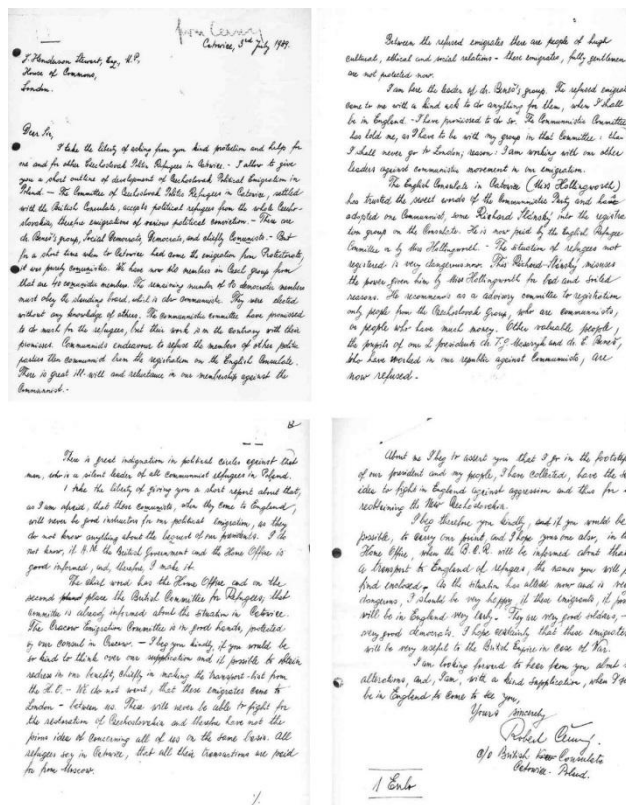 from Czerny
Catowice, 3rd July 1939.
J. Henderson Stewart, Esq., M.P.
House of Commons,
London.
Dear Sir,
I take the liberty of asking from you kind protection and helps for
me and for other Czechoslovak Politic Refugees in Catowice. - I allow to give
you a short outline of development of Czechoslovak Political Emigration in
Poland. - The Committee of Czechoslovak Politic Refugees in Catowice, settled
with the British Consulate, accepts political refugees from the whole Czecho-
slovakia, therefore emigrations of various political conviction. - There are
dr. Beneš's group, Social Democrats, Democrats, and chiefly Communists. - But
for a short time when to Catowice had come the emigration from Protectorate,
it was purely communistic. We have now the members in Czech group from
that are 40 communistic members. The remaining number of 10 democratic members
must obey the standing board, which is also communistic. They were elected
without any knowledge of others. The communistic committee have promised
to do much for the refugees, but their work is on the contrary with their
promises. Communists endeavour to refuse the members of other politic
parties then communist from the registration on the English Consulate.
There is great ill-will and reluctance in our membership against the
Communist. -
Between the refused emigrates there are people of high
cultural, ethical and social relations - these emigrates, fully gentlemen
are not protected now.
I am here the leader of dr. Beneš's group. The refused emigrates
come to me with a kind ask to do anything for them, when I shall
be in England. - I have promised to do so. The Communistic Committee
has told me, as I have to be with my group in that Committee: that
I shall never go to London; reason: I am working with our other
leaders against communistic movement in our emigration.
The English Consulate in Catowice (Miss Hollingworth)
has trusted the sweet words of the Communistic Party and have
adopted one Communist, some Richard Slinský into the registra-
tion group on the Consulate. He is now paid by the English Refugee
Committee or by Miss Hollingworth. - The situation of refugees not
registered is very dangerous now. This Richard Slinský misuses
the power given him by Miss Hollingworth for bad and sorted
reasons. He recommends as a advisory committee to registration
only people from the Czechoslovak Group, who are communists,
or people who have much money. Other valuable people,
the pupils of our 2 presidents dr. T.G. Masaryk and dr. E. Beneš,
who have worked in our republic against Communists, are
now refused.
There is great indignation in political circles against that
man, who is a silent leader of all communist refugees in Poland.
I take the liberty of giving you a short report about that,
as I am afraid, that these communists, when they come to England,
will never be good instructors for our political emigration, as they
do not know anything about the bequest of our presidents. I do
not know, if H.M. the British Government and the Home Office is
good informed, and, therefore, I make it.
The chief word has the Home Office and on the
second place the British Committee for Refugees; that
committee is already informed about the situation in Catowice.
The Cracow Emigration Committee is in good hands, protected
by our consul in Cracow. - I beg you kindly, if you would be
so kind to think over our supplication and if possible to obtain
redress in our benefit, chiefly in making the transport-list from
the H.O. - We do not want, that these emigrates come to
London - between us. These will never be able to fight for
the restoration of Czechoslovakia and therefore have not the
prime idea of concerning all of us on the same basis. All
refugees say in Catowice, that all their transactions are paid
for from Moscow.
%
About me I beg to assert you that I go in the footsteps
of our president and my people, I have collected, have the
idea to fight in England against aggression and thus for
reobtaining the New Czechoslovakia.
I beg therefore you kindly, and if you would be
possible, to carry our point, and I hope you are also, in the
Home Office, when the B.C.R. will be informed about that
a transport to England of refugees, the names you will
find enclosed. As the situation has altered now and is very
dangerous, I should be very happy, if these emigrants, if
will be in England very early. They are very good soldiers, -
very good democrats, I hope certainly that these emigrates
will be very useful to the British Empire in case of War.
I am looking forward to hear from you about
alterations, and, I am, with a kind supplication, when I
be in England to come to see you,
Yours sincerely
Robert Czerny.
c/o British Consulate
Catowice - Poland.
1 Enlo